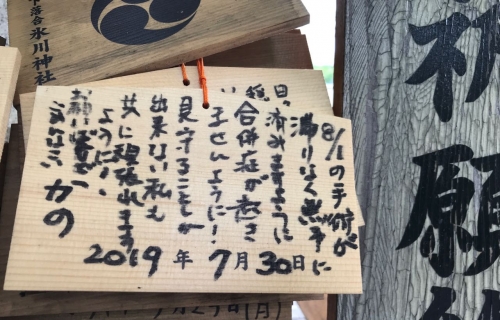 下落合 氷川神社
8/1の手術が
滞りなく無事に
済みますように
合併症が起き
ませんように!
見守ることしか
出来ない私も
共に頑張れます
ように!
かの
2019年7月30日
祈願
月29日(月)